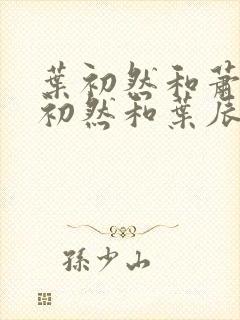 葉初然和蕭
初然和葉辰
孫少山